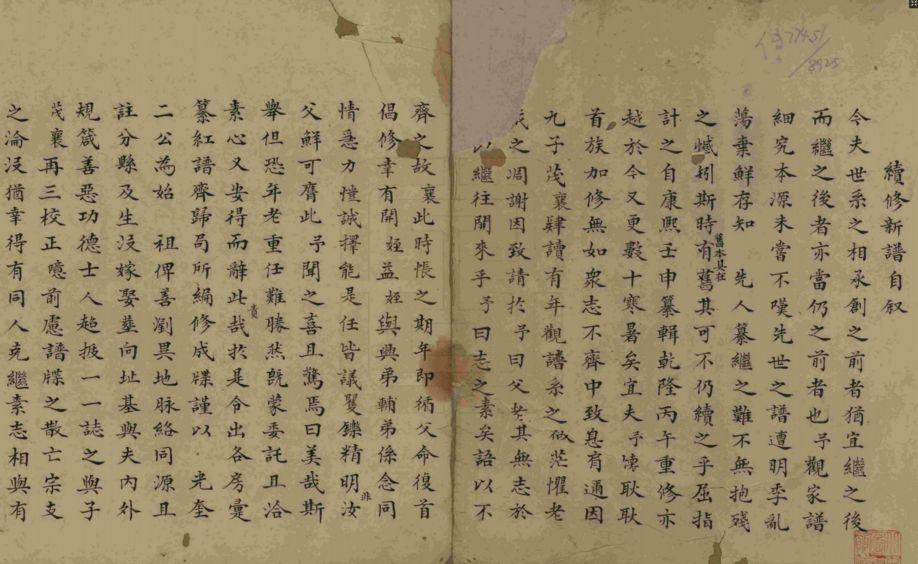 續修新譜自叙
今夫世系之相承創之前者猶宜繼之後
而繼之後者亦當仍之前者也予觀家譜
細究本源未嘗不嘆先世之譜遭明季亂
蕩棄鮮存知 先人纂繼之難不無抱殘
之憾矧斯時有舊其可不仍續之乎屈指
舊本具在
計之自康熙壬申纂輯乾隆丙午重修亦
越於今又更數十寒暑矣宜夫予懷耿耿
首族加修無如衆志不齊中致息肩適因
九子茂襄肄讀有年觀譜系之 茫懼老
之凋謝因致請於予曰父老其無志於
以繼往開來乎予曰志之素矣語以不
齊之故襄此時悵之期年即循父命復首
倡修幸有開姪益姪與興弟輔弟係念同
情急力憧誠擇能是任皆議矍鑠精明汝
非
父鮮可膺此予聞之喜且驚焉曰美哉斯
舉但恐年老重任難勝然既蒙委託且洽
素心又安得而辭此哉於是令出各房彙
責
纂紅譜齊歸局所編修成牒謹以 光奎
二公為始 祖俾善瀏異地脉絡同源且
註分縣及生沒嫁娶塟向址基與夫內外
規箴善惡功德士人超拔一一誌之與子
茂襄再三校正噫前慮譜牒之散亡宗支
之淪沒猶幸得有同人克繼素志相與有